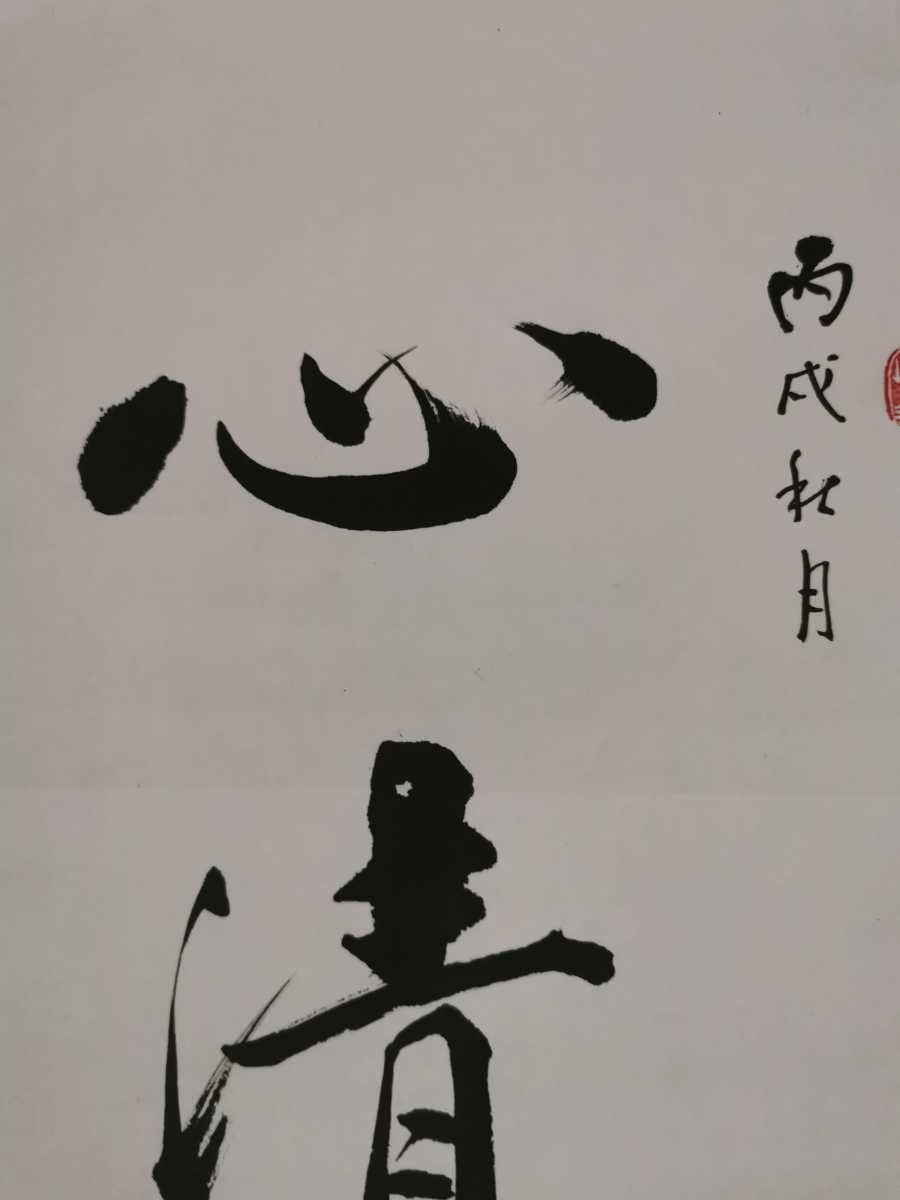 丙戌秋月
心清